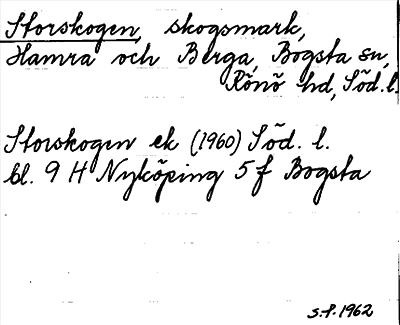 Storskogen, skogsmark,
Hamra och Berga, Bogsta sn,
Rönö hd, Söd. l.
Storskogen ek (1960) Söd. l.
bl. 9 H Nyköping 5 f Bogsta
s.f. 1962